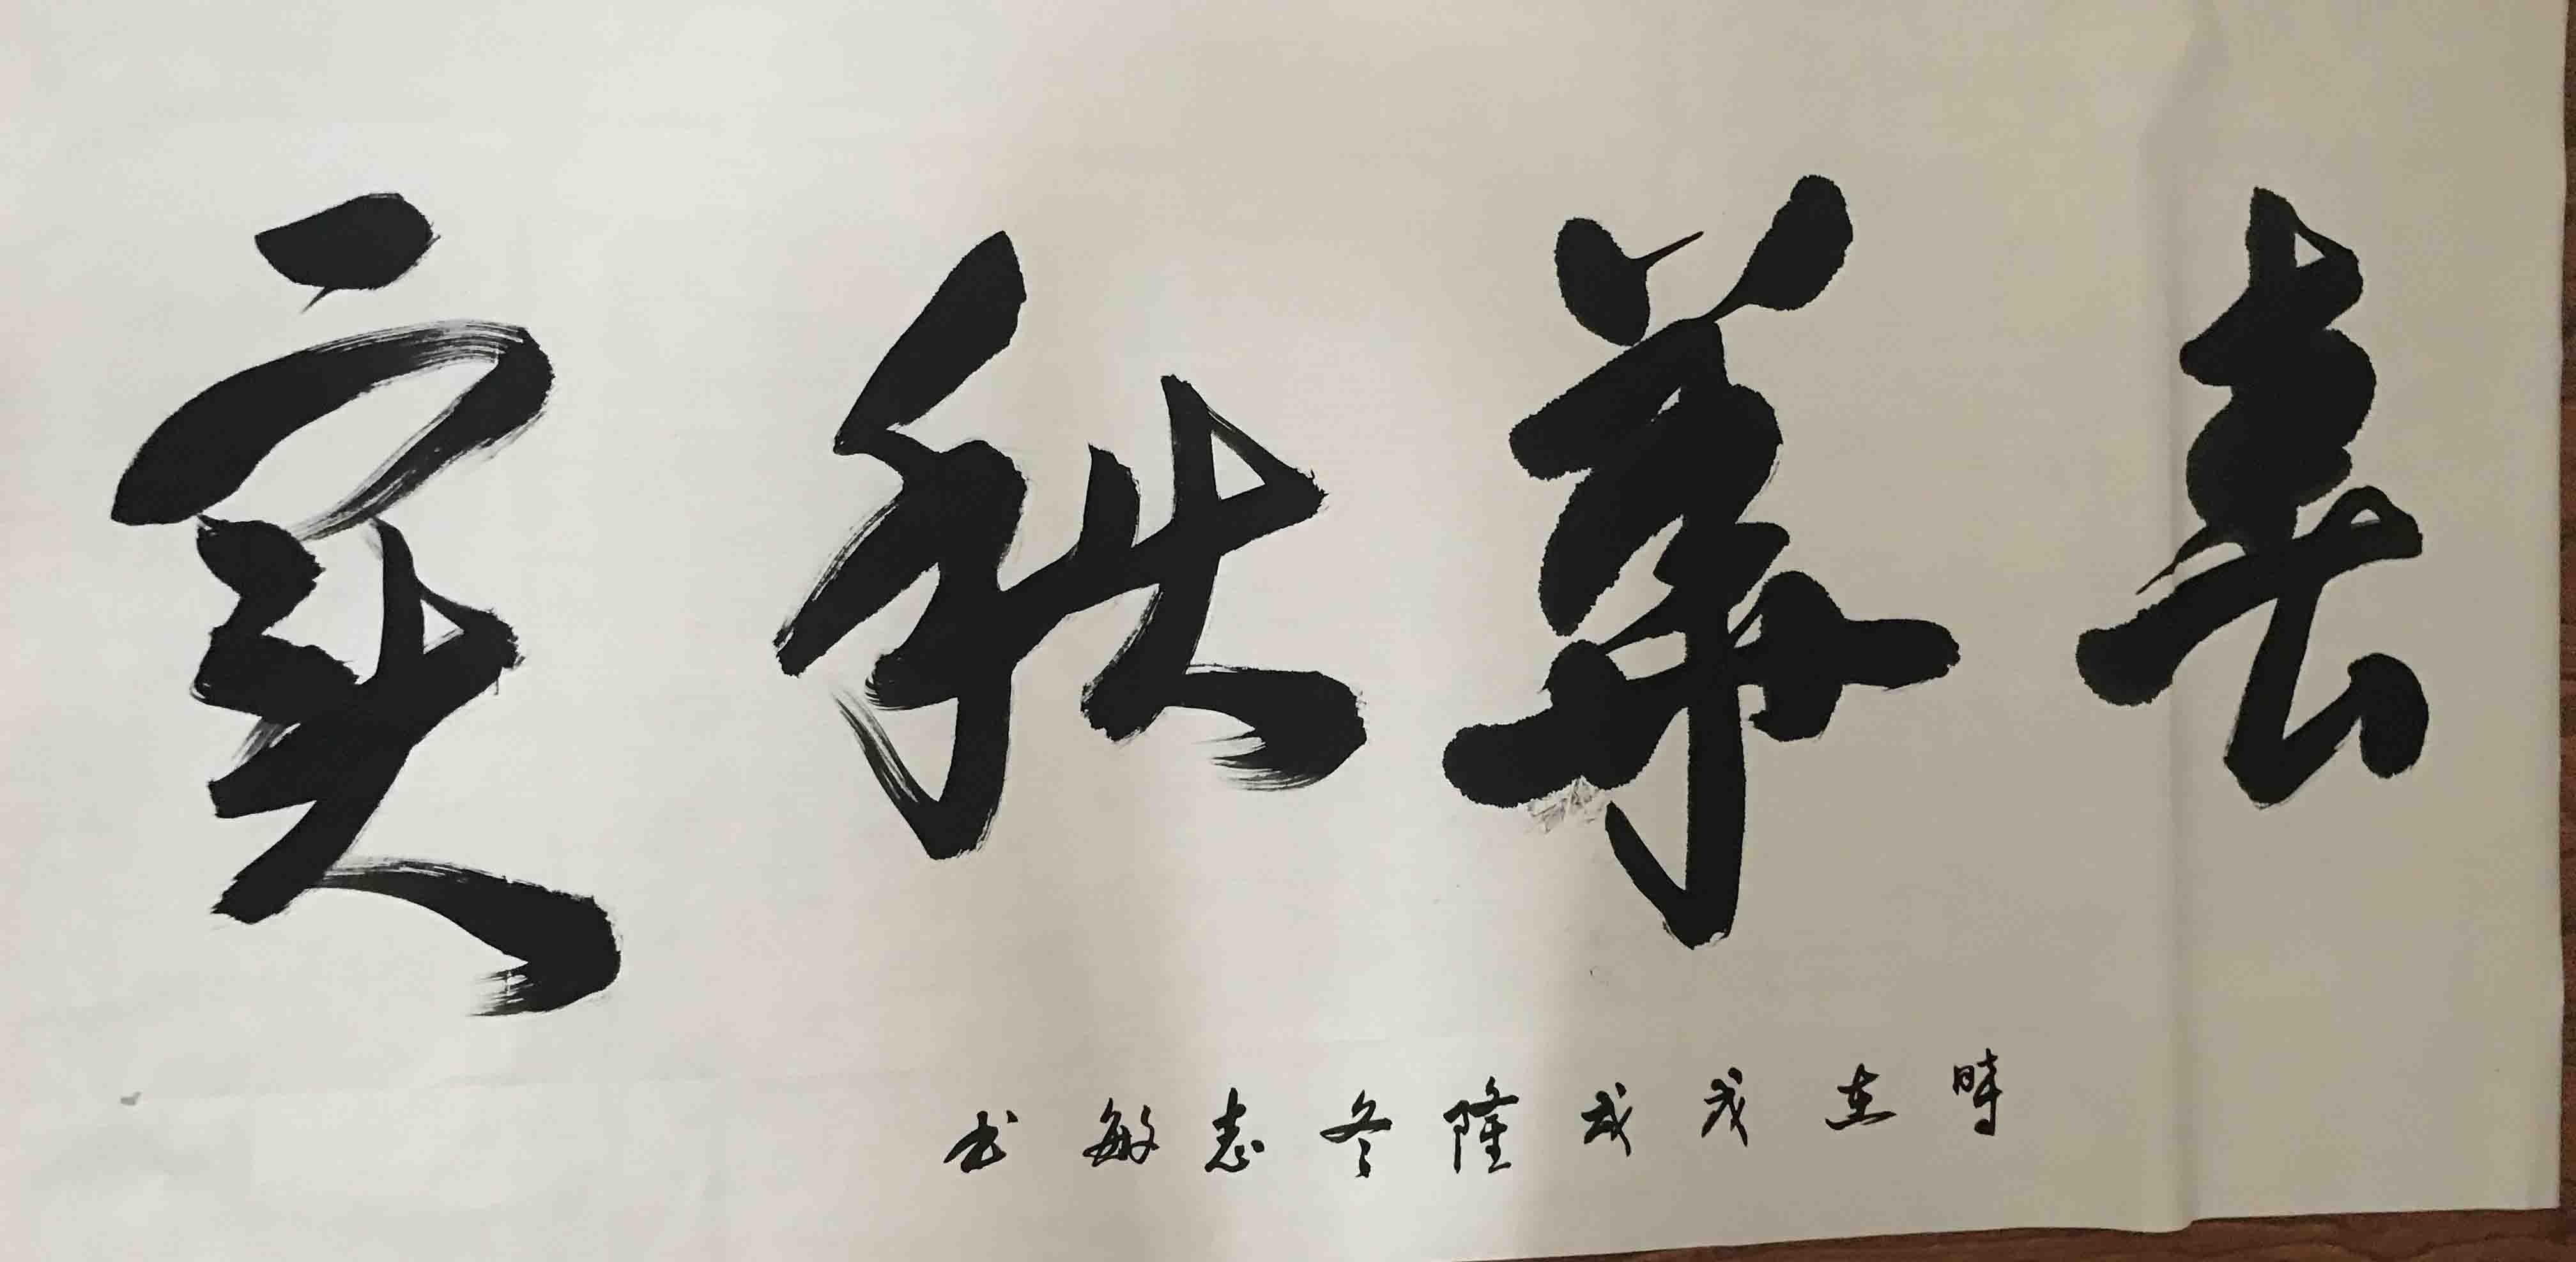 春華秋实
時在戊戌隆冬志敏书